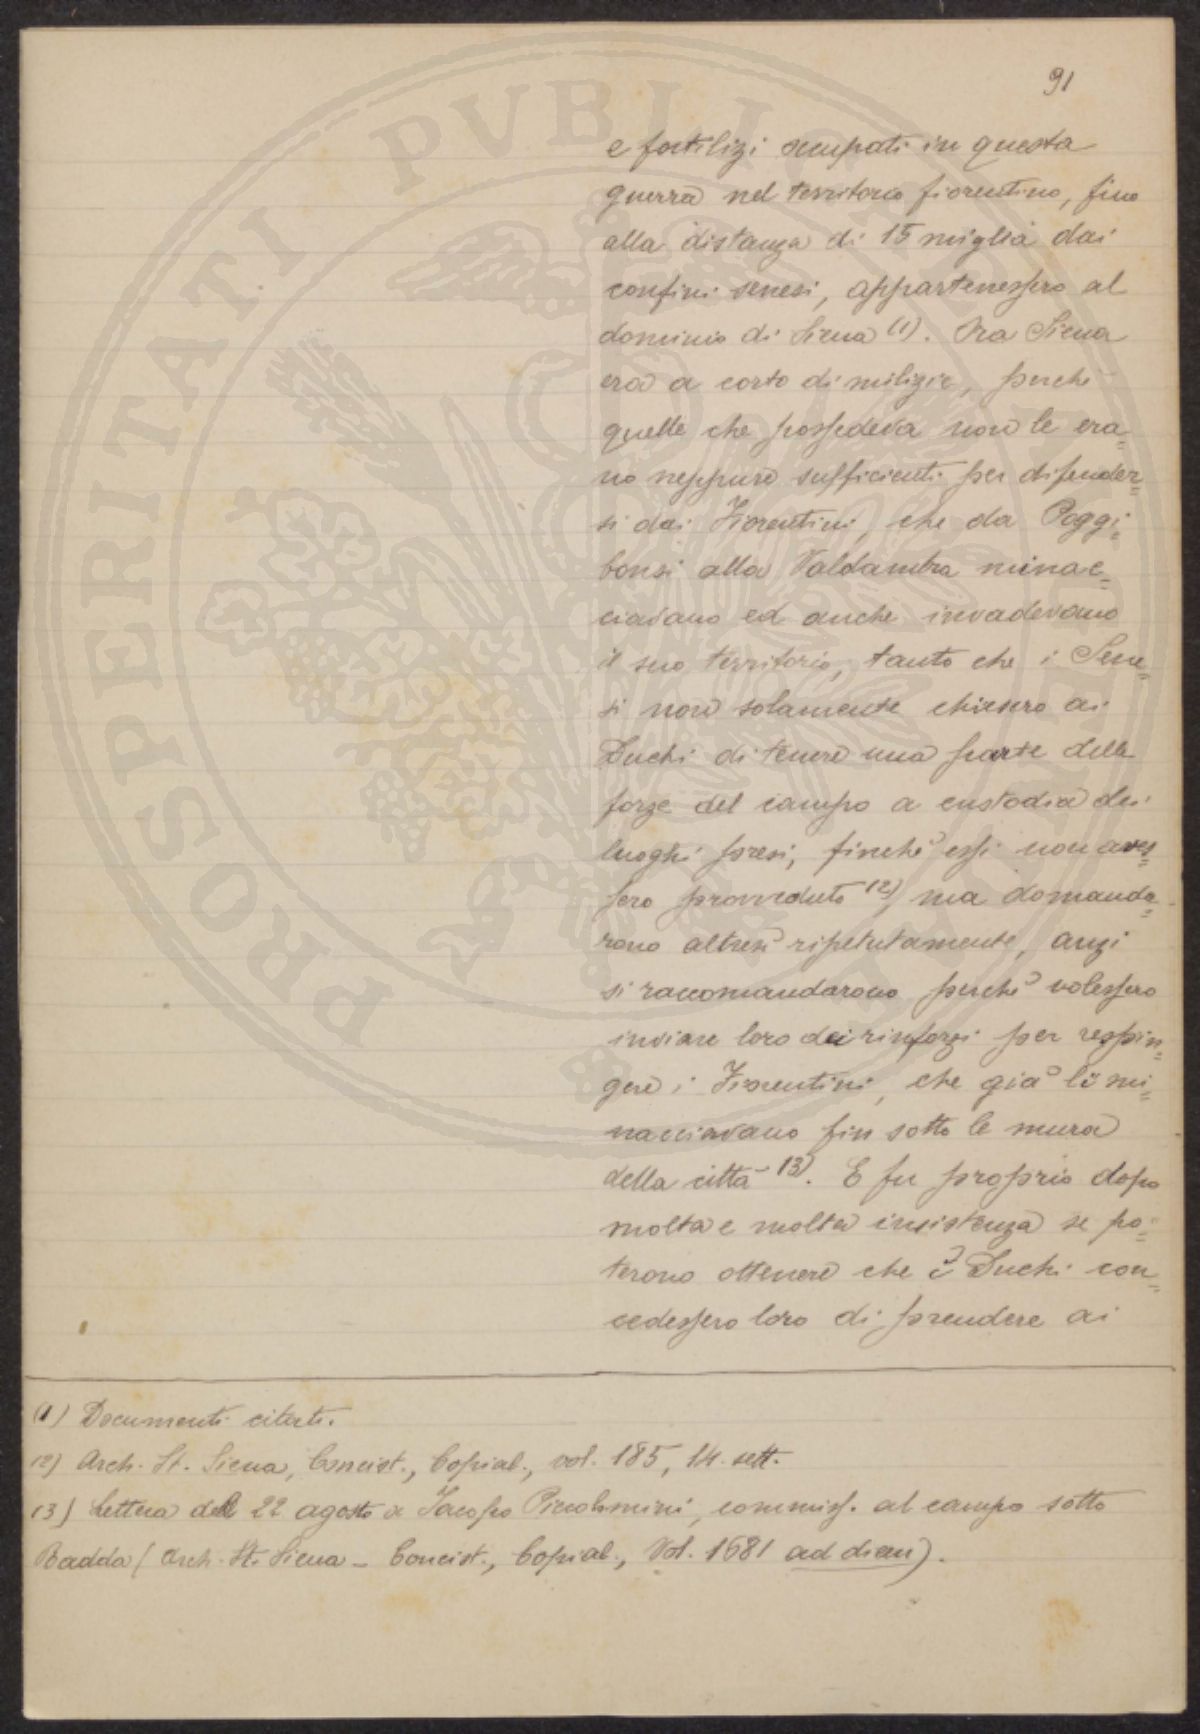 91
e fortilizi occupati in questa
guerra nel territorio fiorentino, fino
alla distanza di 15 miglia dai
confini senesi, appartenessero al
dominio di Siena (1). Ora Siena
era a corto di milizie, perchè
quelle che possedeva non le era=
no neppure sufficienti per difender=
si dai Fiorentini, che da Poggi=
bonsi alla Valdambra minac=
ciavano ed anche invadevano
il suo territorio, tanto che i Sene=
si non solamente chiesero ai
Duchi di tenere una parte delle
forze del campo a custodia dei
luoghi presi, finchè essi non aves=
sero provveduto (2), ma domanda=
rono altresì ripetutamente, anzi
si raccomandarono perchè volessero
inviare loro dei rinforzi per respin=
gere i Fiorentini, che già li mi=
nacciavano fin sotto le mura
della città (3). E fu proprio dopo
molta e molta insistenza se po=
terono ottenere che i Duchi con=
cedessero loro di prendere ai
(1) Documenti citati.
(2) Arch. St. Siena, Concist., Copial., vol. 185, 14. sett.
(3) Lettera del 22 agosto a Iacopo Piccolomini, commiss. al campo sotto
Radda (Arch. St. Siena - Concist., Copial., Vol. 1681 ad diem).
PROSPERITATI PVBLICAE